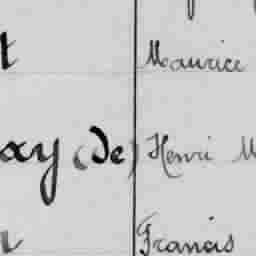 t Maurice
ay (de) Henri M
Francis